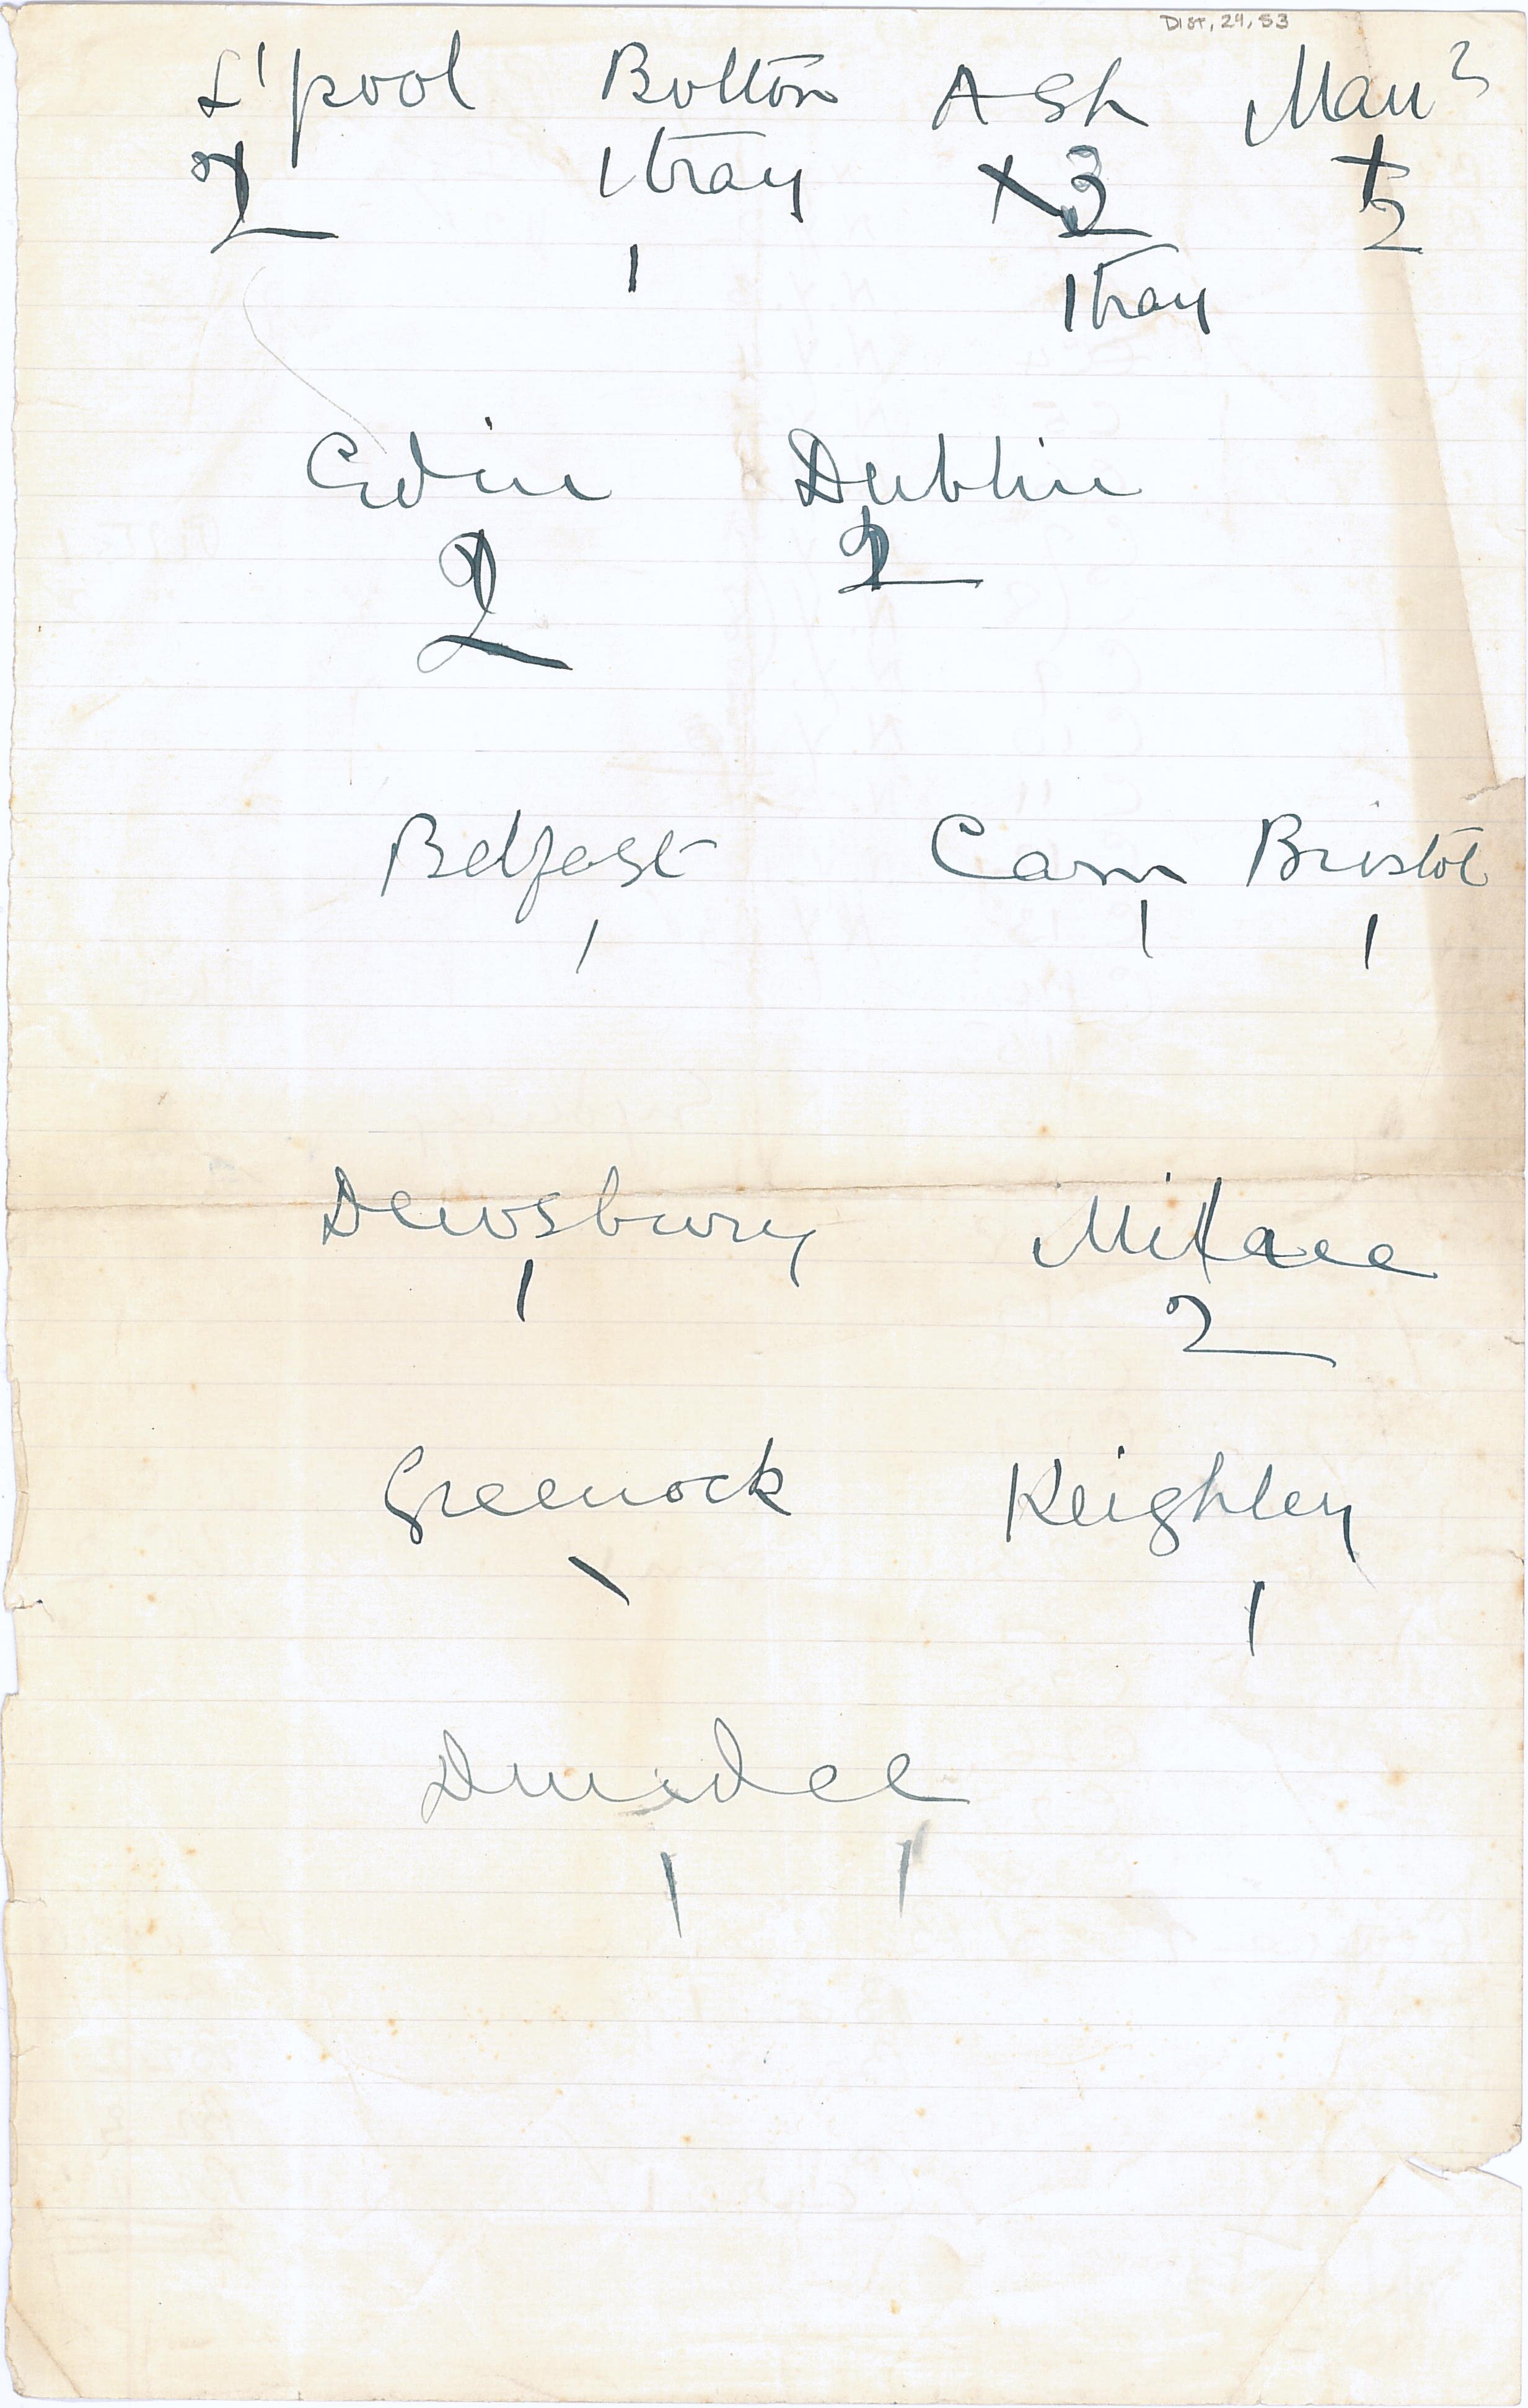 DIST. 24, 53
L'pool Bolton Ash Man
2 1 tray × 3 + 2
1 1 tray
Edin Dublin
2 2
Belfast Cam Bristol
1 1 1
Dewsbury
1 2
Greenock Keighley
\ 1
Dundee
1 1